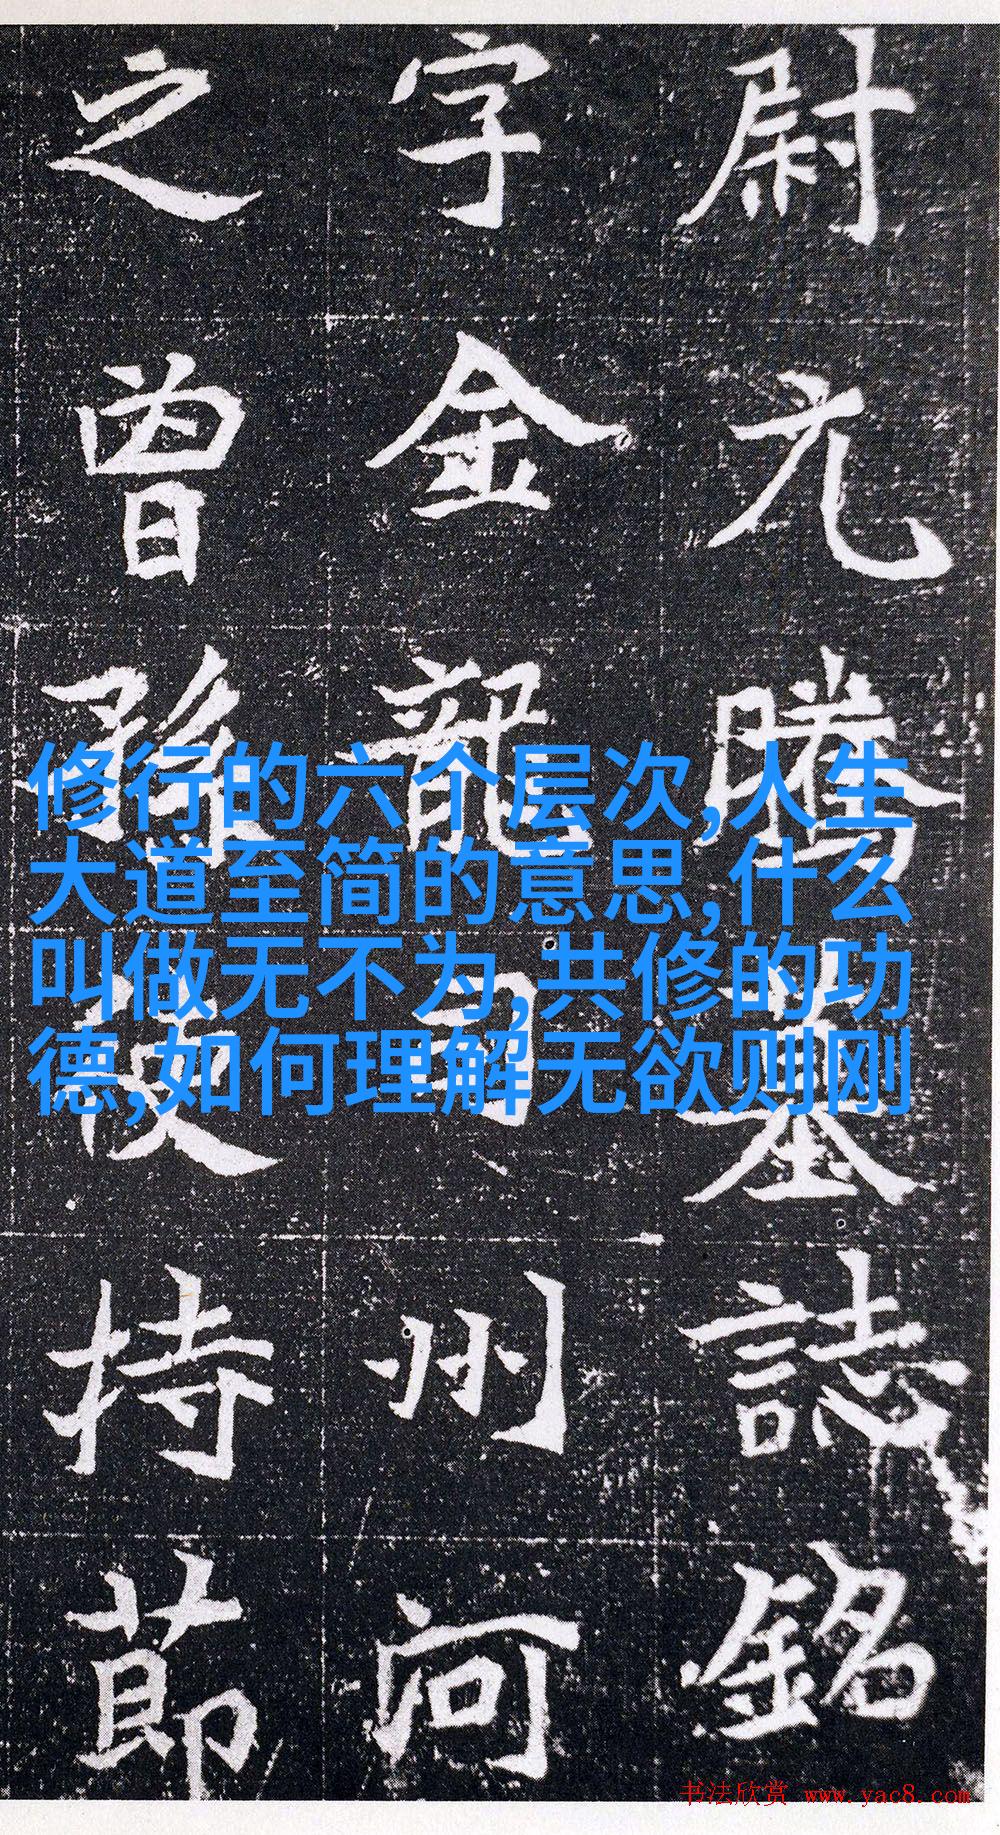 尉元騰墓誌銘
字金龍司州河
之曾孫持節
修行的六个层次,人生
大道至简的意思,什么
叫做无不为,共修的功
德,如何理解无欲则刚
书法欣赏 www.yac8.com